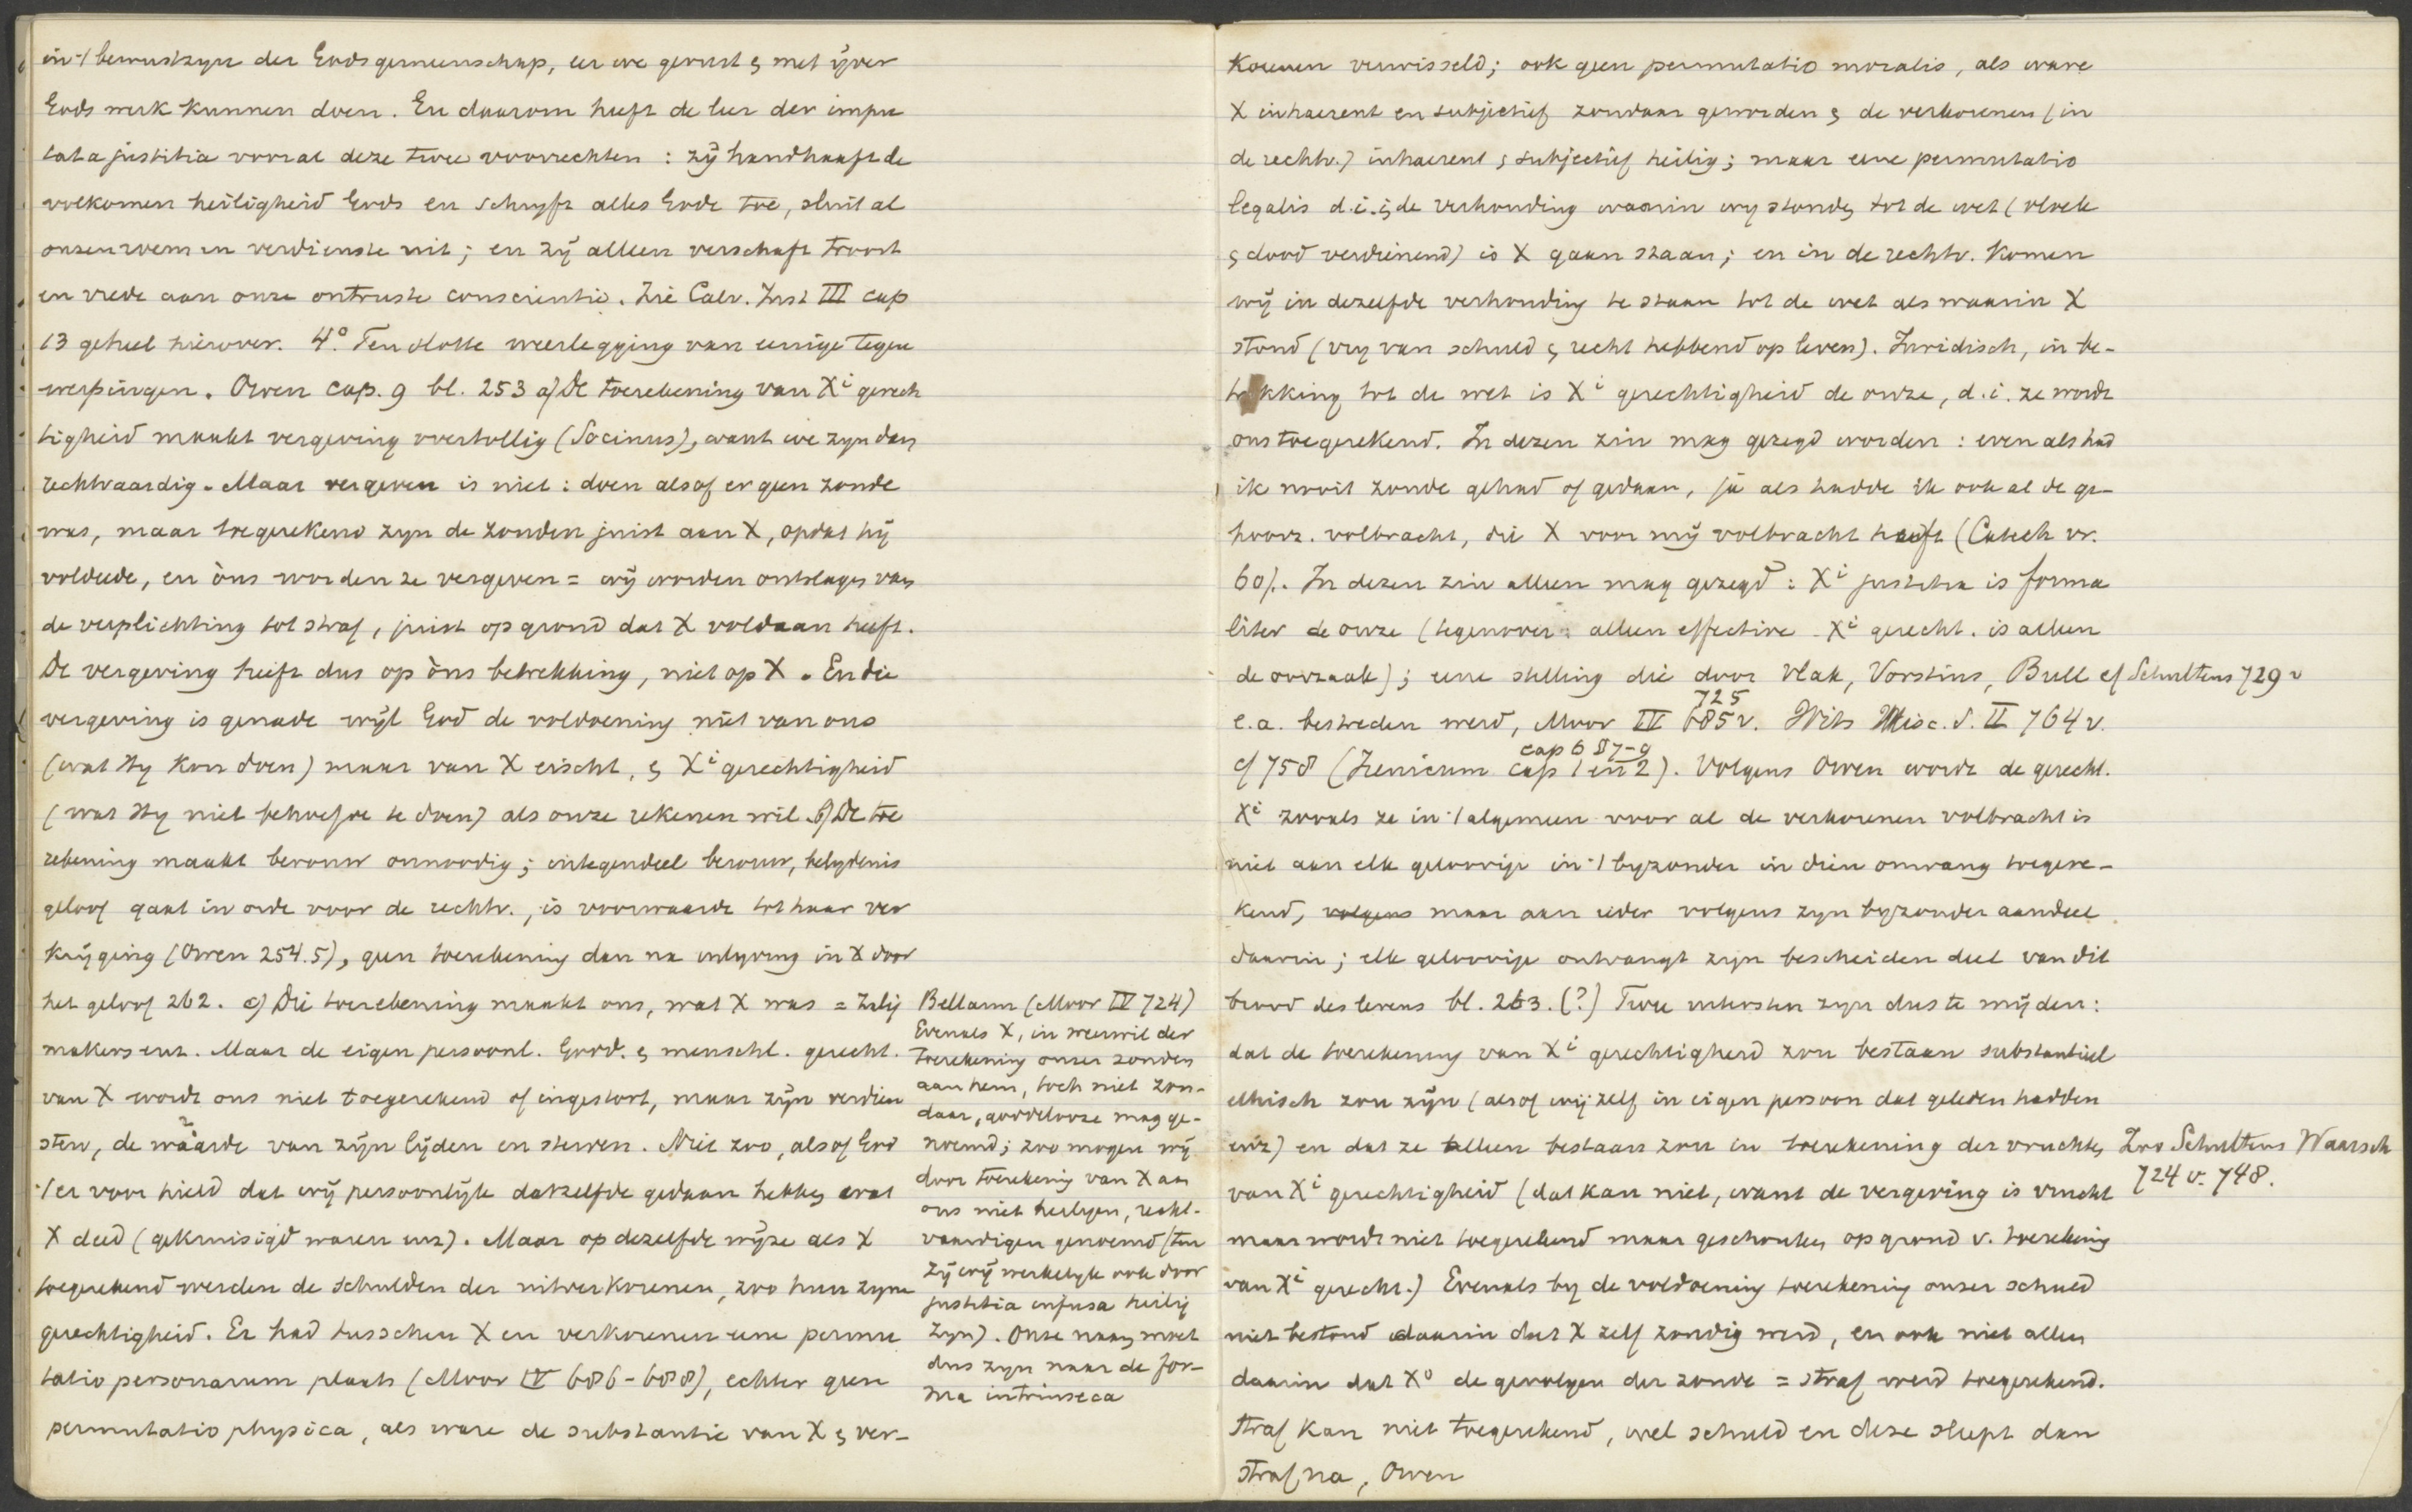 in 't bewustzyn der Godsgemeenschap, eer we gerust & met ijver
Gods werk kunnen doen. En daarom heeft de leer der impu
tata justitia vooral deze twee voorrechten : zij handhaaft de
volkomen heiligheid Gods en schryft alles Gode toe, sluit al
onzen roem en verdienste uit ; en zij alleen verschaft troost
en vrede aan onze ontruste conscientie. Zie Calv. Inst III cap
13 geheel hierover. 4° Ten slotte weerlegging van eenige tegen
werpingen. Owen cap. 9 bl. 253 a) De toerekening van Xi gerech
tigheid maakt vergeving overtollig (Socinus), want we zyn dan
rechtvaardig. Maar vergeven is niet : doen alsof er geen zonde
was, maar toegerekend zyn de zonden juist aan X, opdat hij
voldeede, en òns worden ze vergeven = wij worden ontslagen van
de verplichting tot straf, juist op grond dat X voldaan heeft.
De vergeving heeft dus op òns betrekking, niet op X. En die
vergeving is genade wijl God de voldoening niet van ons
(wat Hy kon doen) maar van X eischt, & Xi gerechtigheid
(wat Hy niet behoefde te doen) als onze rekenen wil. b) De toe
rekening maakt berouw onnoodig ; integendeel berouw, belydenis
geloof gaat in orde voor de rechtv., is voorwaarde tot haar ver
krijging (Owen 254.5), geen toerekening dan na inlyving in X door
het geloof 262. c) Die toerekening maakt ons, wat X was = zalig
makers enz. Maar de eigen persoonl. Godd. & menschl. gerecht.
van X wordt ons niet toegerekend of ingestort, maar zijn verdien
sten, de waarde van zijn lijden en sterven. Niet zoo, alsof God
't er voor hield dat wij persoonlijk datzelfde gedaan hebben wat
X deed (gekruisigd waren enz). Maar op dezelfde wijze als X
toegerekend werden de schulden der uitverkorenen, zoo hun zyne
gerechtigheid. Er had tusschen X en verkorenen eene permu
tatio personarum plaats (Moor IV 686-688), echter geen
permutatio physica, als ware de substantie van X & ver-
Bellarm (Moor IV 724)
Evenals X, in weerwil der
toerekening onzer zonden
aan hem, toch niet zon-
daar, goddelooze mag ge-
noemd ; zoo mogen wij
door toerekenig van X aan
ons niet heiligen, recht-
vaardigen genoemd (ten
zij wij werkelyk ook door
justitia infusa heilig
zyn). Onze naam moet
dus zyn naar de for-
ma intrinseca
korenen verwisseld ; ook geen permutatio moralis, als ware
X inhaerent en subjectief zondaar geworden & de verkorenen (in
de rechtv.) inhaerent & subjectief heilig ; maar eene permutatio
legalis d.i. in de verhouding waarin wy stonden tot de wet (vloek
& dood verdienend) is X gaan staan ; en in de rechtv. komen
wij in dezelfde verhouding te staan tot de wet als waarin X
stond (vry van schuld & recht hebbend op leven). Juridisch, in be-
trekking tot de wet is Xi gerechtigheid de onze, d.i. ze wordt
ons toegerekend. In dezen zin mag gezegd worden : even als had
ik nooit zonde gehad of gedaan, ja als hadde ik ook al de ge-
hoorz. volbracht, die X voor mij volbracht heeft (Catech vr.
60). In dezen zin alleen mag gezegd : Xi justitia is forma
liter de onze (tegenover : alleen effective Xi gerecht. is alleen
de oorzaak) ; eene stelling die door Vlak, Vorstius, Bull cf Schultens 729 v
725
e.a. bestreden werd, Moor IV 685 v. Wits Misc. S. II 764 v.
cap 6 §7-9
cf 758 (Irenicum cap 1 en 2). Volgens Owen wordt de gerecht.
Xi zooals ze in 't algemeen voor al de verkorenen volbracht is
niet aan elk geloovige in 't byzonder in dien omvang toegere-
kend, volgens maar aan ieder volgens zyn byzonder aandeel
daarin ; elk geloovige ontvangt zijn bescheiden deel van dit
brood des levens bl. 263. (?) Twee uitersten zyn dus te mijden :
dat de toerekening van Xi gerechtigheid zou bestaan substantieel
ethisch zou zijn (alsof wij zelf in eigen persoon dat geleden hadden
enz) en dat ze alleen bestaan zou in toerekening der vruchten
Zoo Schultens Waarsch
724 v. 748.
van Xi gerechtigheid (dat kan niet, want de vergeving is vrucht
maar wordt niet toegerekend maar geschonken op grond v. toerekening
van Xi gerecht.) Evenals by de voldoening toerekening onzer schuld
niet bestond daarin dat X zelf zondig werd, en ook niet alleen
daarin dat Xo de gevolgen der zonde = straf werd toegerekend.
Straf kan niet toegerekend, wel schuld en deze sleept dan
straf na, Owen